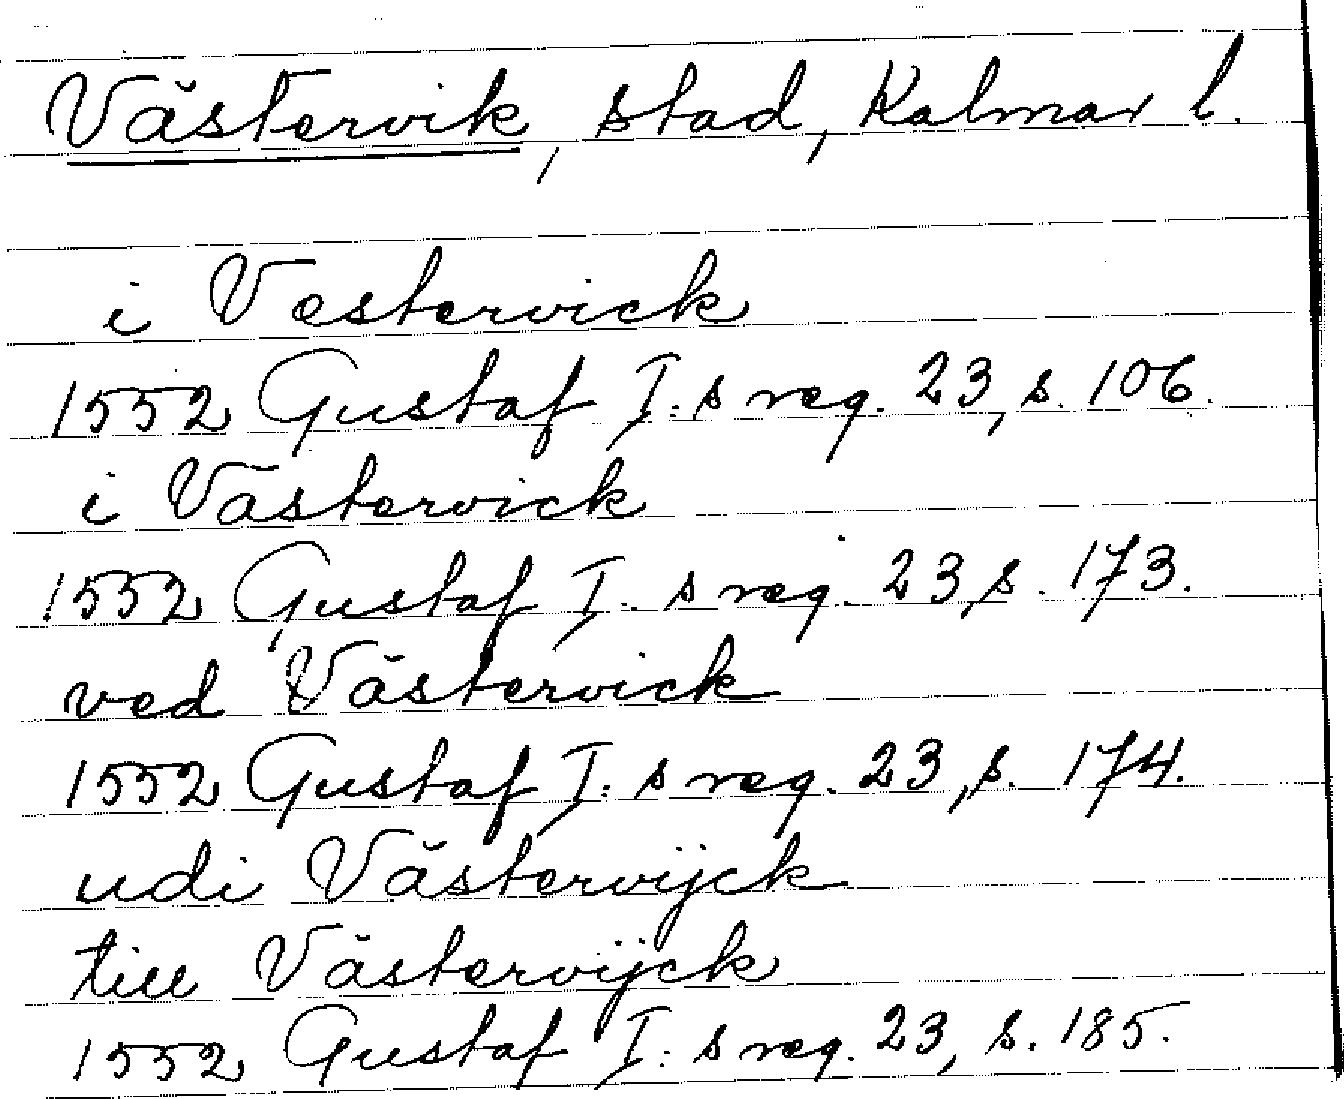 Västervik, stad, Kalmar l.
i Vestervick
1552 Gustaf I:s reg. 23, s. 106.
i Västervick
1552 Gustaf I:s reg. 23, s. 173.
ved Västervick
1552 Gustaf I:s reg. 23, s. 174.
udi Västervijck
till Västervijck
1552 Gustaf I:s reg. 23, s. 185.